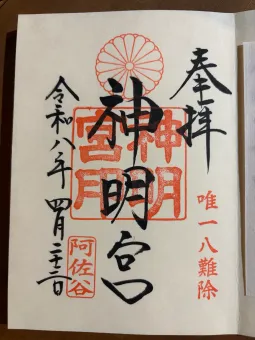 奉拝
唯一八難除
神明宮
神明宮
令和八年 四月二十二日
阿佐谷